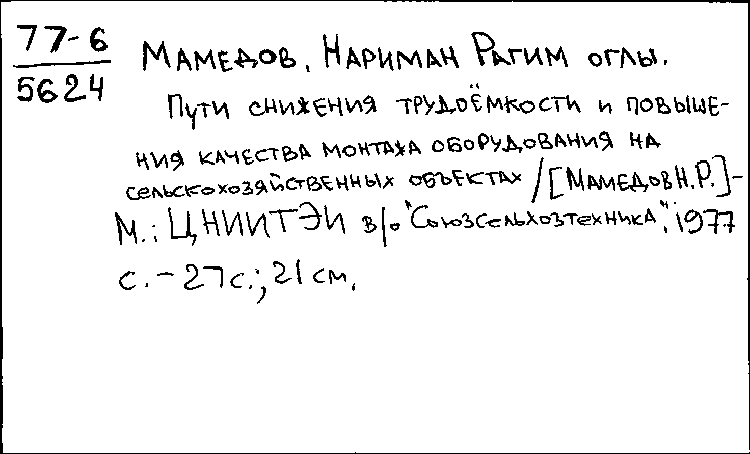 77-6
5624
Мамедов, Нариман Рагим оглы.
Пути снижения трудоёмкости и повыше-
ния качества монтажа оборудования на
сельскохозяйственных объектах /[Мамедов Н.Р.]-
М.: ЦНИИТЭИ в/о "Союзсельхозтехника", 1977
с. - 27с.; 21 см.